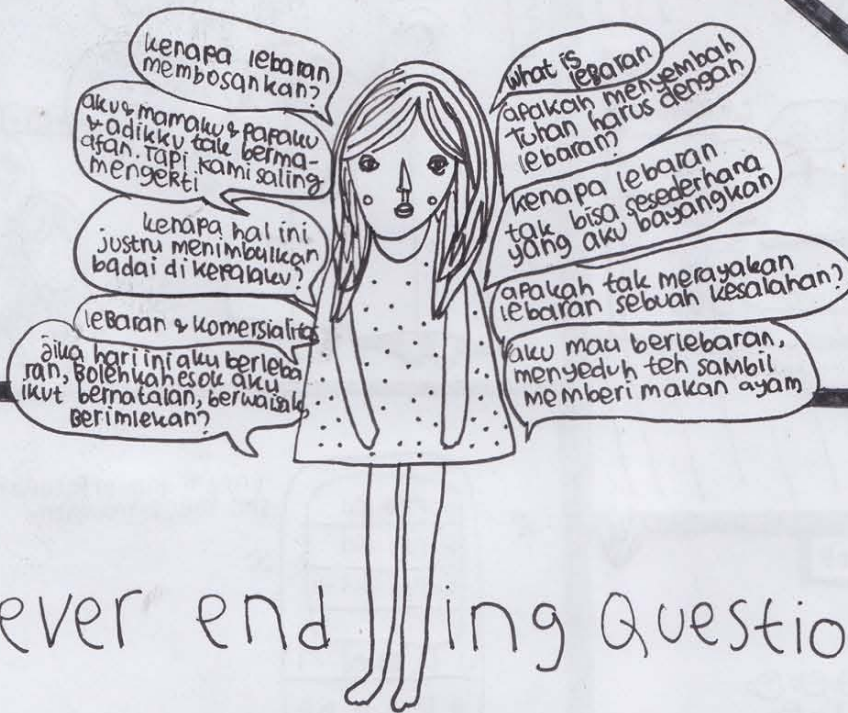 kenapa lebaran
membosankan?
aku & mamaku & papaku
& adikku tak berma-
afan. Tapi kami saling
mengerti
kenapa hal ini
justru menimbulkan
badai di kepalaku?
lebaran & komersialitas
jika hari ini aku berleba
ran, bolehkah esok aku
ikut bernatalan, berwaisak,
berimlekan?
what is
lebaran
apakah menyembah
tuhan harus dengan
lebaran?
kenapa lebaran
tak bisa sesederhana
yang aku bayangkan
apakah tak merayakan
lebaran sebuah kesalahan?
aku mau berlebaran,
menyeduh teh sambil
memberi makan ayam
ever end ing Questio